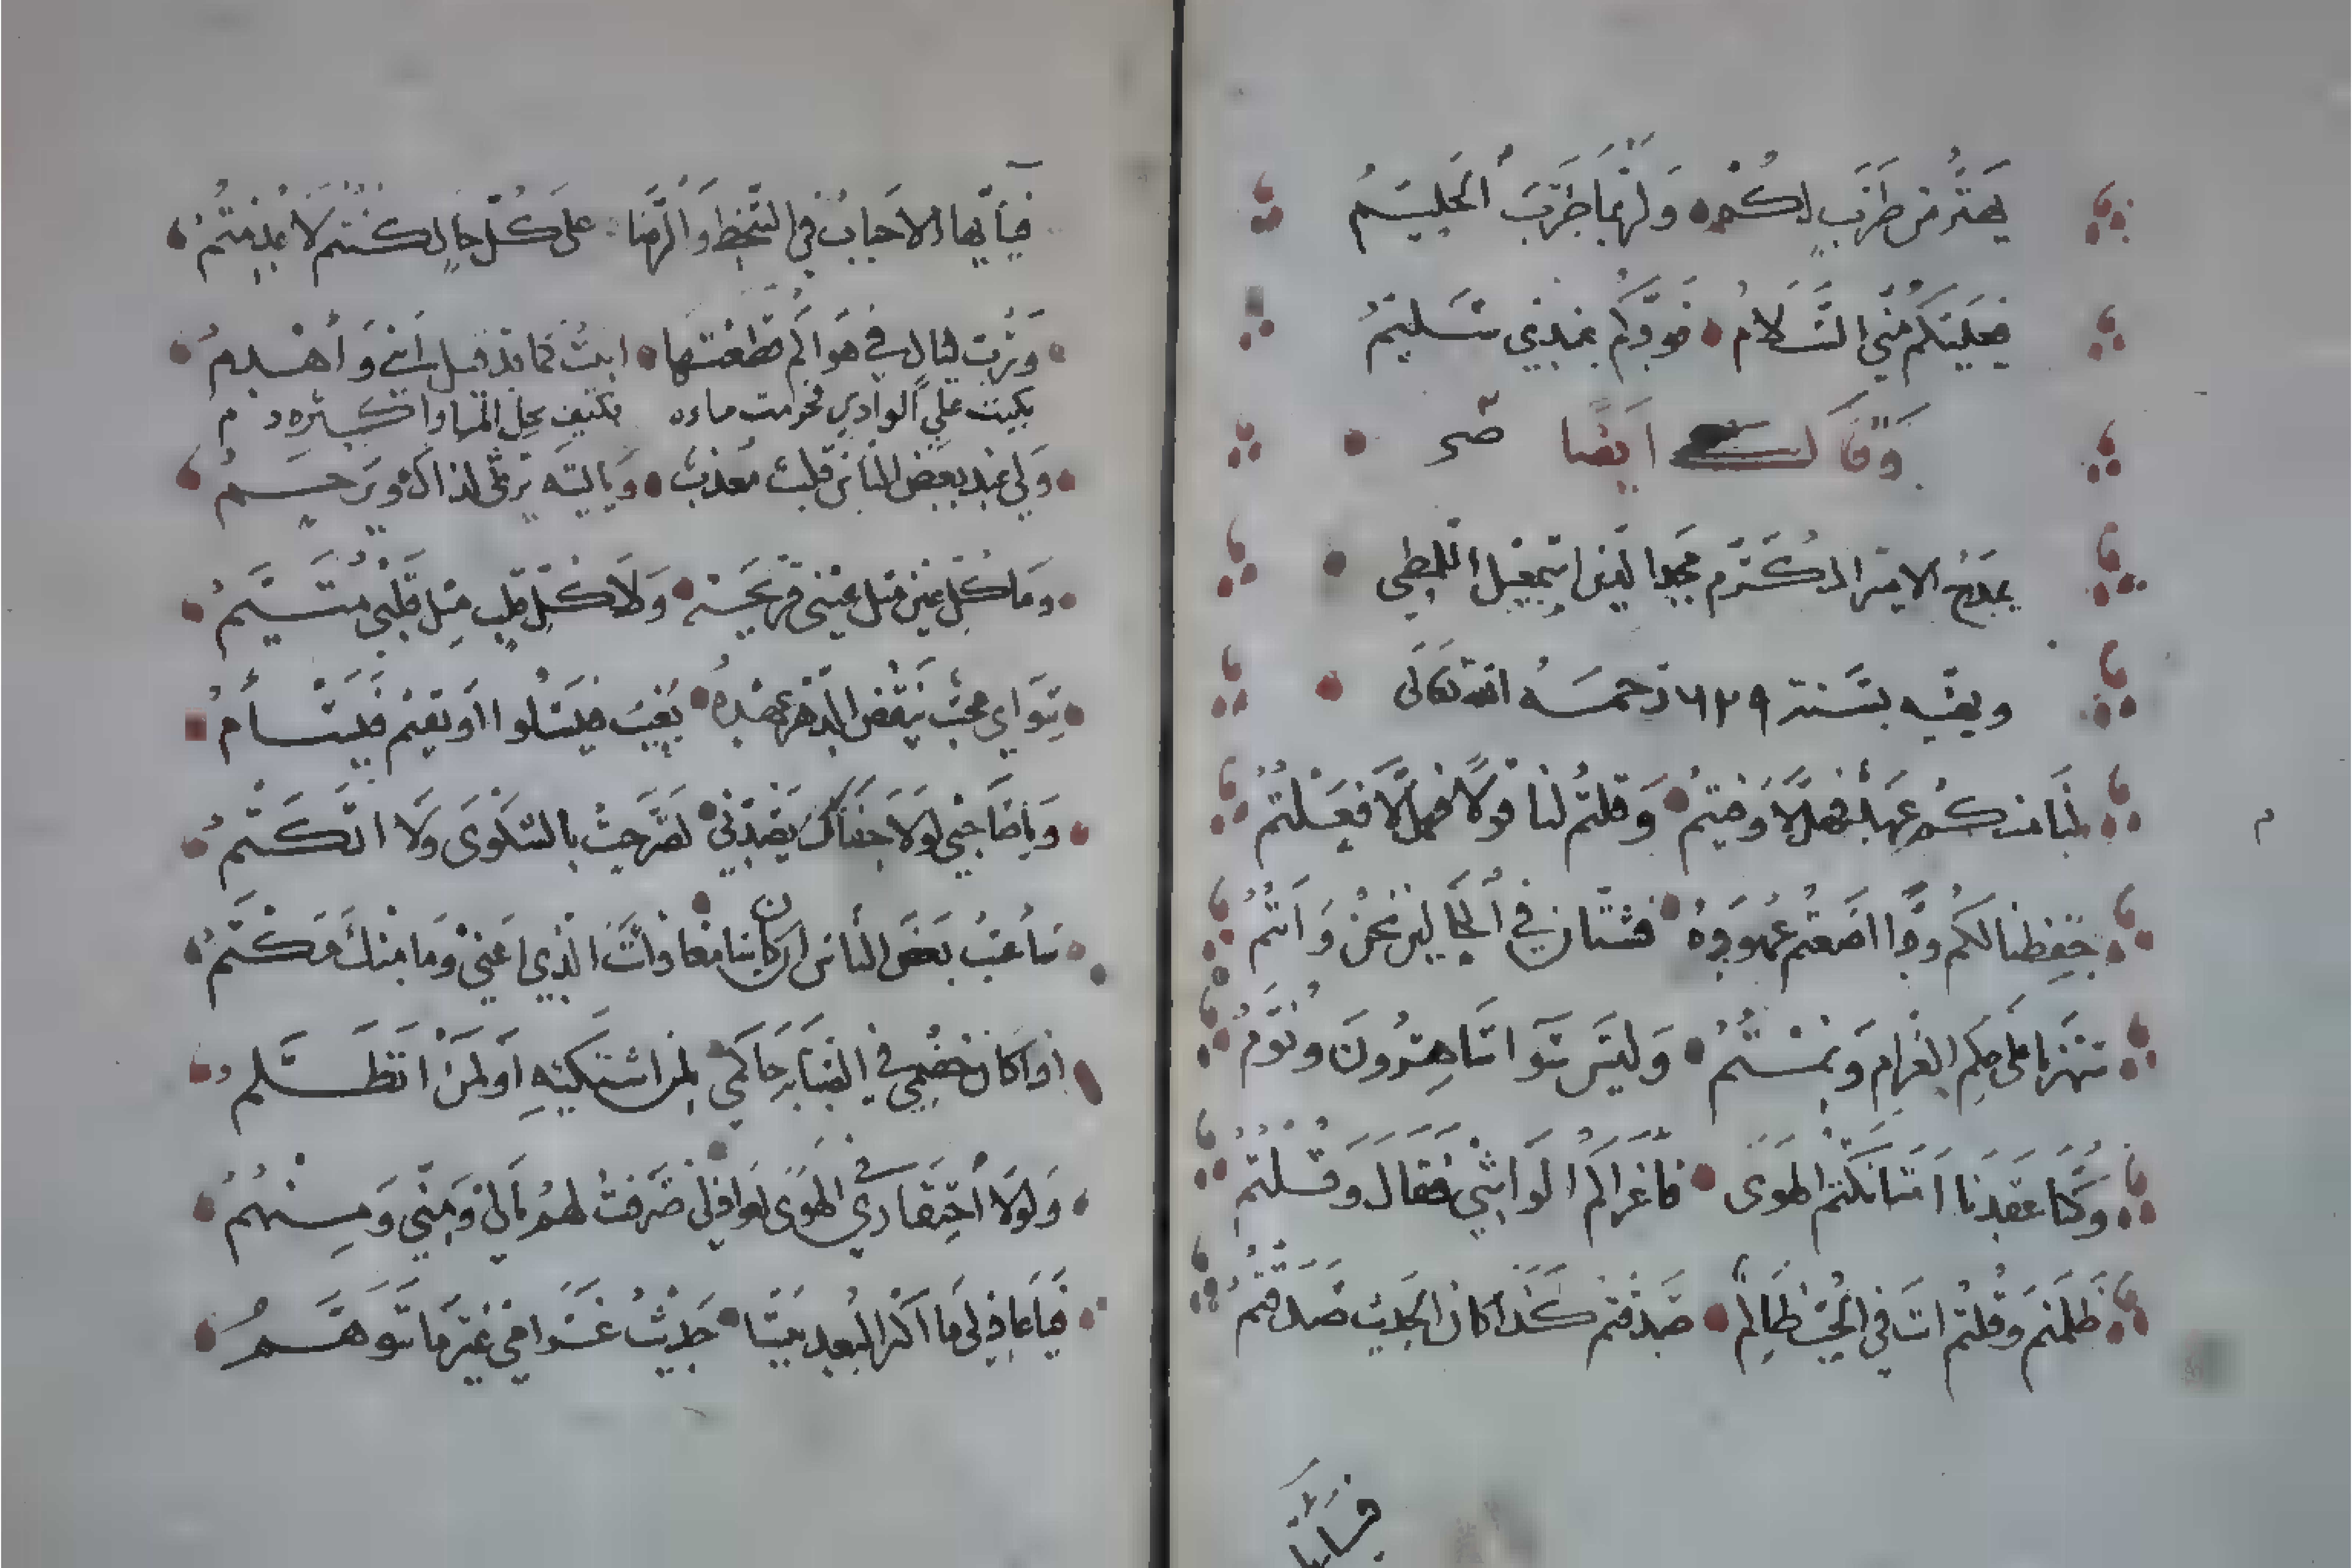 يهتز من طرب لكم ولربما طرب الحليم
فعليكم مني السلام فودكم عندي سليم
وقال ايضا صح
يمدح الامير المكرم مجد الدين اسمعيل اللمطي
بسنة ٦٢٩ رحمه الله تعالى
لنا منكم عهد فهلا وفيتم وقلتم لنا قولا فهلا فعلتم
حفظنا لكم ودا اضعتم عهوده فشتان في الحالين نحن وانتم
سهرنا على حكم الغرام ونمتم وليس سوا ساهرون ونوم
وكنا عقدنا اننا نكتم الهوى فاغراكم الواشي فقال وقلتم
ظلمتم وقلتم انت في الحب ظالم صدقتم كذا كان الحديث صدقتم
فيا ايها
فيا ايها الاحباب في السخط والرضا على كل حال لكنتم لا عدمتم
ورب ليال في هواكم قطعتها ابث كما قد قيل ابني واهدم
بكيت على الوادي فحرمت ماءه فكيف يحل الما واكثره دم
ولي عند بعض الناس قلب معذب وياليته يرثي لذاك ويرحم
وما كل عين مثل عيني قريحة ولا كل قلب مثل قلبي متيم
سواي محب ينقض الدهر عهده يغيب فيسلوا او يقيم فيسأم
ويا صاحبي لولا حفاظ يصدني لصرحت بالشكوى ولا اتكتم
ساعتب بعض الناس ان كان سامعا وانت الذي اعني وما منك مكتم
اذا كان خصمي في الصبابة حاكمي لمن اشتكيه او لمن اتظلم
ولولا احتقاري في الهوى لعواذلي صرفت لهم بالي ومني ومنهم
فيا عاذلي ما اكثر البعد بيننا حديث غرامي غير ما تتوهم